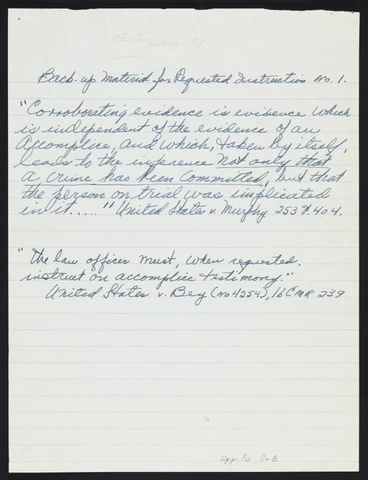 Back-up Material for Requested Instruction No. 1.
"Corroborating evidence is evidence which
is independent of the evidence of an
Accomplice, and which, taken by itself,
leads to the inference not only that
a crime has been committed, but that
the person on trial was implicated
in it....." United States v. Murphy 253 F. 404.
"The law officer must, when requested,
instruct on accomplice testimony."
United States v. Bey (No 4254), 16 CMR 239
App. Ex. 2-B